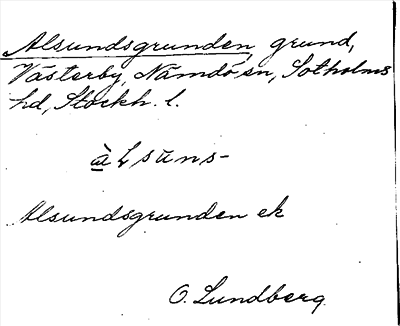 Alsundsgrunden, grund,
Västerby, Nämdö sn, Sotholms
hd, Stockh. l.
Alsundsgrunden ek
O. Lundberg